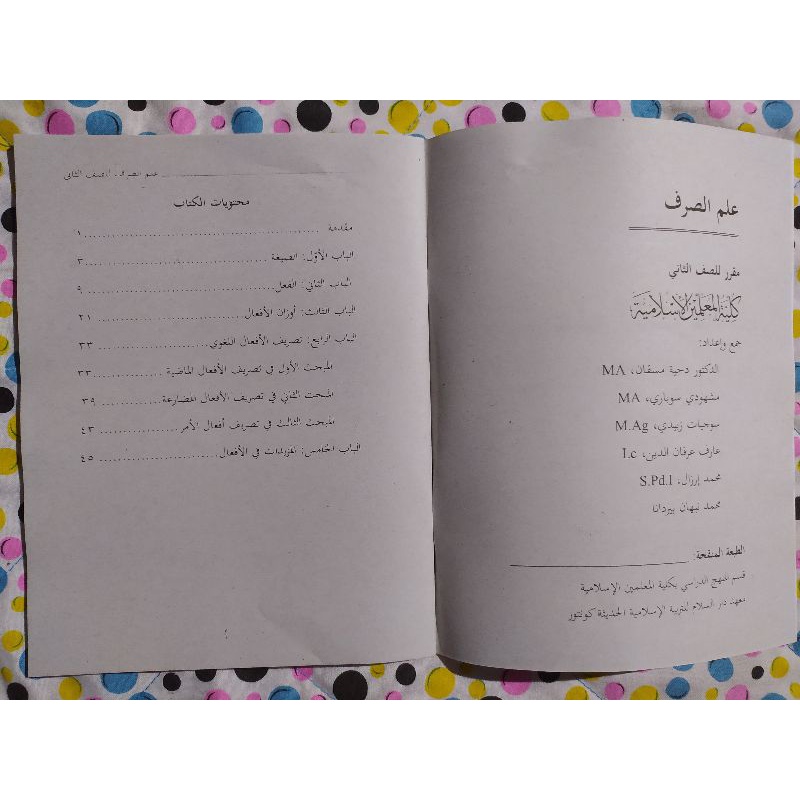 علم الصرف
مقرر للصف الثاني
كلية المعلمين الإسلامية
جمع وإعداد:
الدكتور دحية مسقان، MA
مشهودي سوباري، MA
سوجيات زبيدي، M.Ag
عارف عرفان الدين، Lc
محمد إرزال، S.Pd.I
محمد نبهان بيردانا
الطبعة المنقحة:
قسم المنهج الدراسي بكلية المعلمين الإسلامية
معهد دار السلام للتربية الإسلامية الحديثة كونتور
علم الصرف، للصف الثاني
محتويات الكتاب
مقدمة ١
الباب الأول: الصيغة ٣
الباب الثاني: الفعل ٩
الباب الثالث: أوزان الأفعال ٢١
الباب الرابع: تصريف الأفعال اللغوي ٣٣
المبحث الأول في تصريف الأفعال الماضية ٣٣
المبحث الثاني في تصريف الأفعال المضارعة ٣٩
المبحث الثالث في تصريف أفعال الأمر ٤٣
الباب الخامس: في الأفعال ٤٥